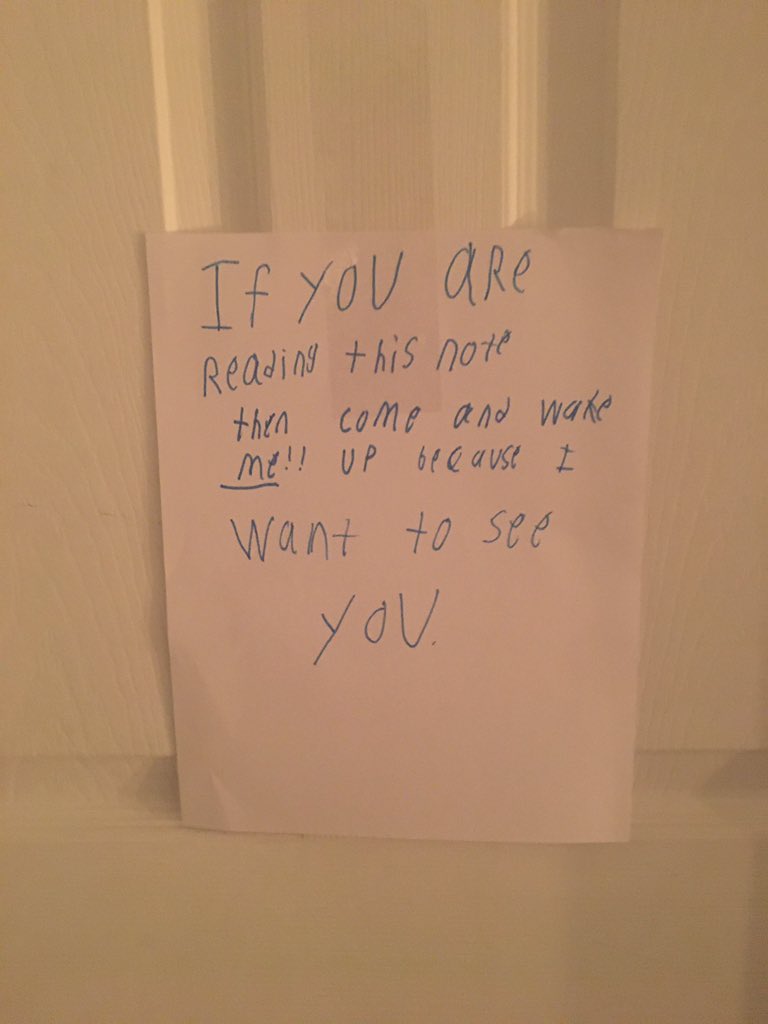 If YOU ARe
Reading this note
then come and wake
me!! UP because I
want to see
YOU.